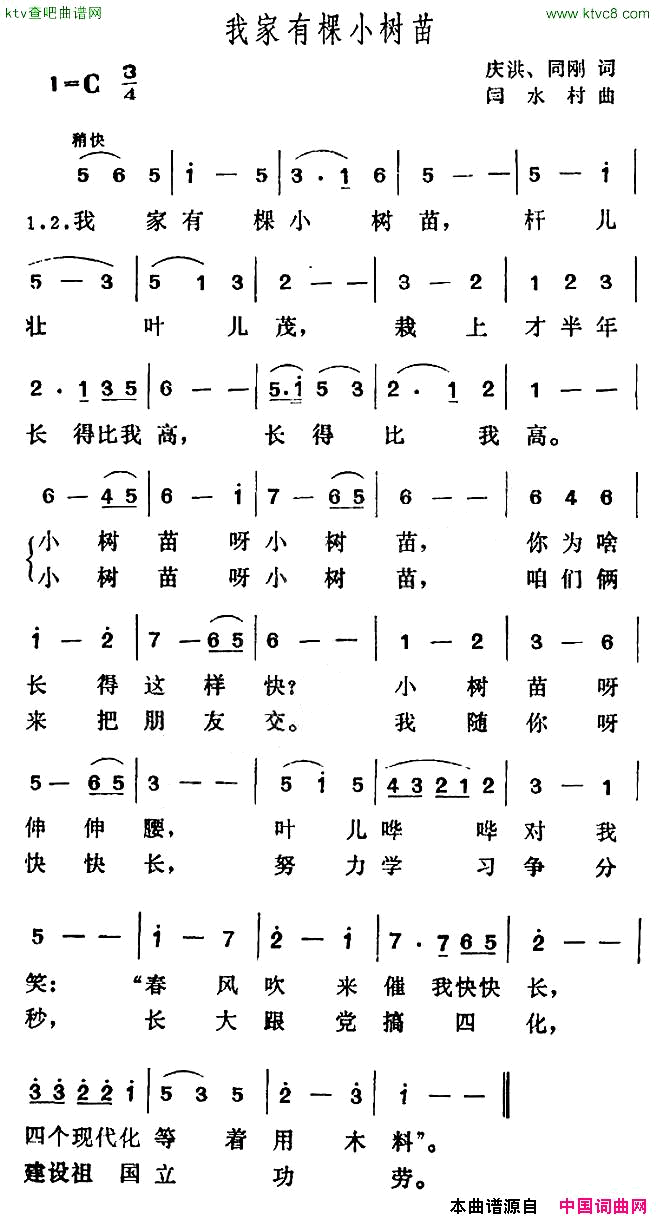 ktv查吧曲谱网
www.ktvc8.com
我家有棵小树苗
1=C 3/4
庆洪、同刚 词
闫水村 曲
稍快
5 6 5 | i — 5 | 3 · 1 6 | 5 — — | 5 — i |
1.2.我 家 有 棵 小 树 苗, 杆 儿
5 — 3 | 5 1 3 | 2 — — | 3 — 2 | 1 2 3 |
壮 叶 儿 茂, 栽 上 才 半 年
2 · 1 3 5 | 6 — — | 5 · i 5 3 | 2 · 1 2 | 1 — — |
长 得比我 高, 长 得 比 我 高。
6 — 4 5 | 6 — i | 7 — 6 5 | 6 — — | 6 4 6 |
小 树 苗 呀 小 树 苗, 你 为 啥
小 树 苗 呀 小 树 苗, 咱 们 俩
i — 2 | 7 — 6 5 | 6 — — | 1 — 2 | 3 — 6 |
长 得 这 样 快? 小 树 苗 呀
来 把 朋 友 交。 我 随 你 呀
5 — 6 5 | 3 — — | 5 i 5 | 4 3 2 1 2 | 3 — 1 |
伸 伸 腰, 叶 儿 哗 哗 对 我
快 快 长, 努 力 学 习 争 分
5 — — | i — 7 | 2 — i | 7 · 7 6 5 | 2 — — |
笑: “春 风 吹 来 催 我快快 长,
秒, 长 大 跟 党 搞 四 化,
3 3 2 2 i | 5 3 5 | 2 — 3 | i — — ‖
四个现代化 等 着 用 木 料”。
建设祖 国 立 功 劳。
本曲谱源自 中国词曲网